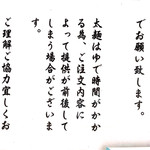 でお願い致します。
太麺はゆで時間がかか
る為、ご注文内容に
よって提供が前後して
しまう場合がございま
す。
ご理解ご協力宜しくお